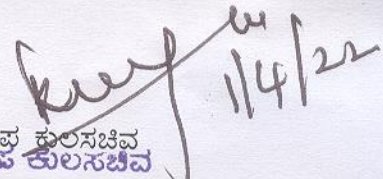 1/4/22
ಪ್ರ ಕುಲಸಚಿವ
ಪ ಕುಲಸಚಿವ